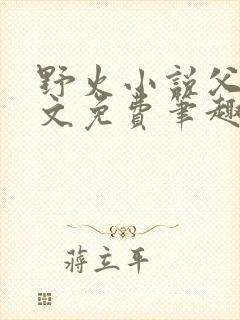 野火小说父
文免费笔趣
蒋立平